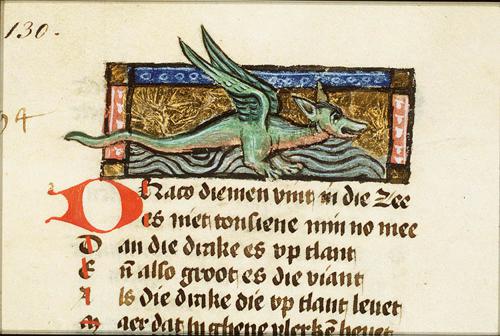 130.
94
Draco diemen vint in die Zee
es niet tonsiene min no mee
Dan die drake es vp tlant
En also groot es die viant
Als die drake die vp tlant leuet
Maer dat hi ghene vlerken heuet